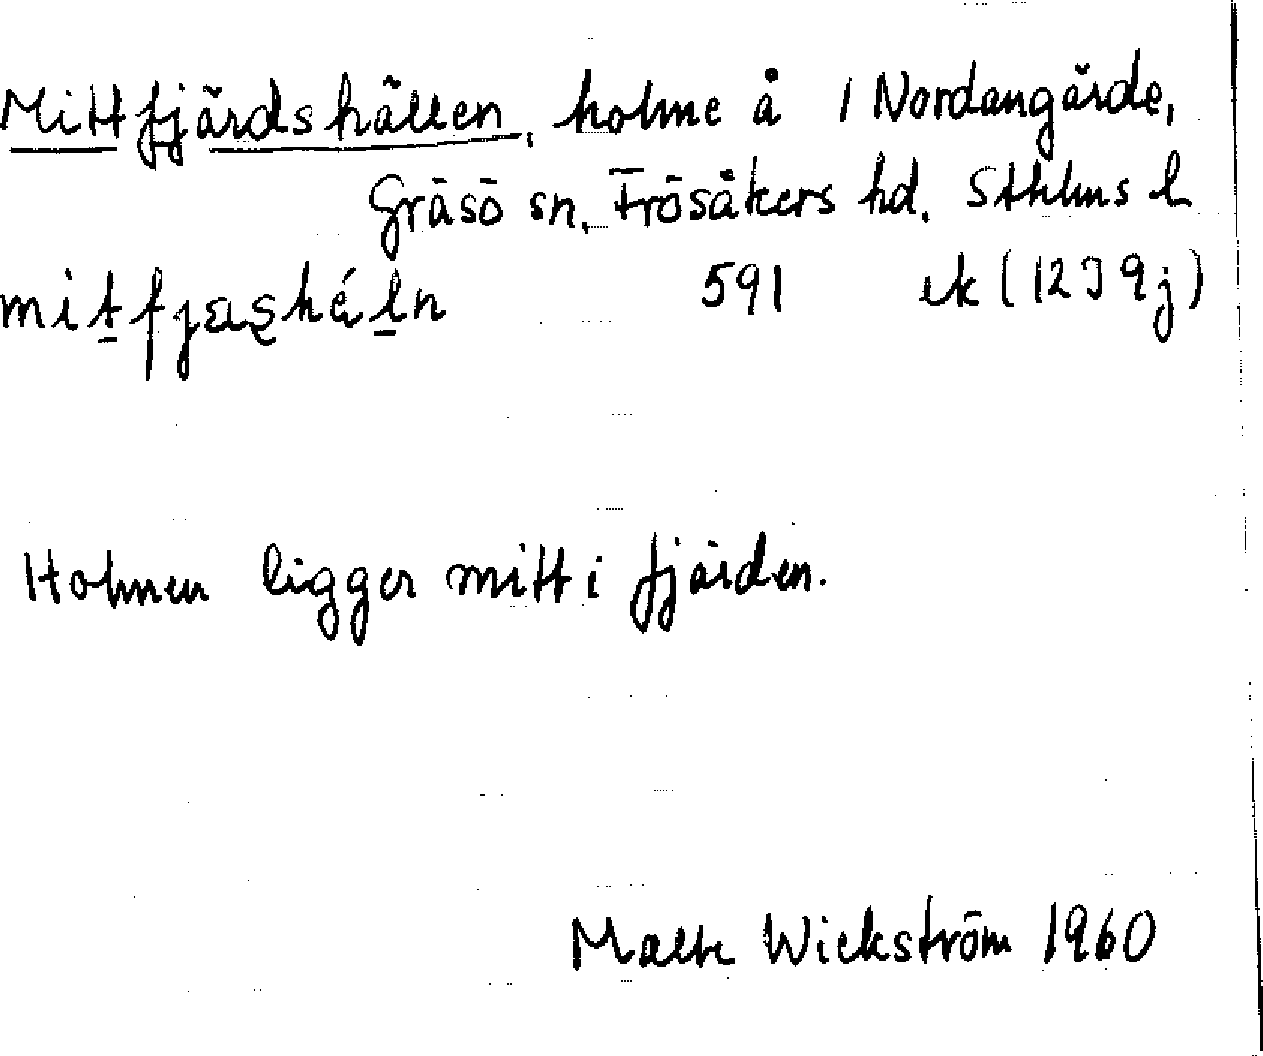 Mittfjärdshällen, holme å 1 Nordangärde,
Gräsö sn. Frösåkers hd. Sthlms l
mitfjæshéln 591 ek (12J 9j)
Holmen ligger mitt i fjärden.
Malte Wickström 1960